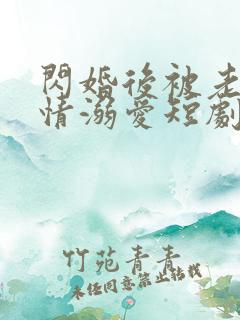 閃婚後被老
情溺愛短劇
竹苑青青
未经同意禁止转载